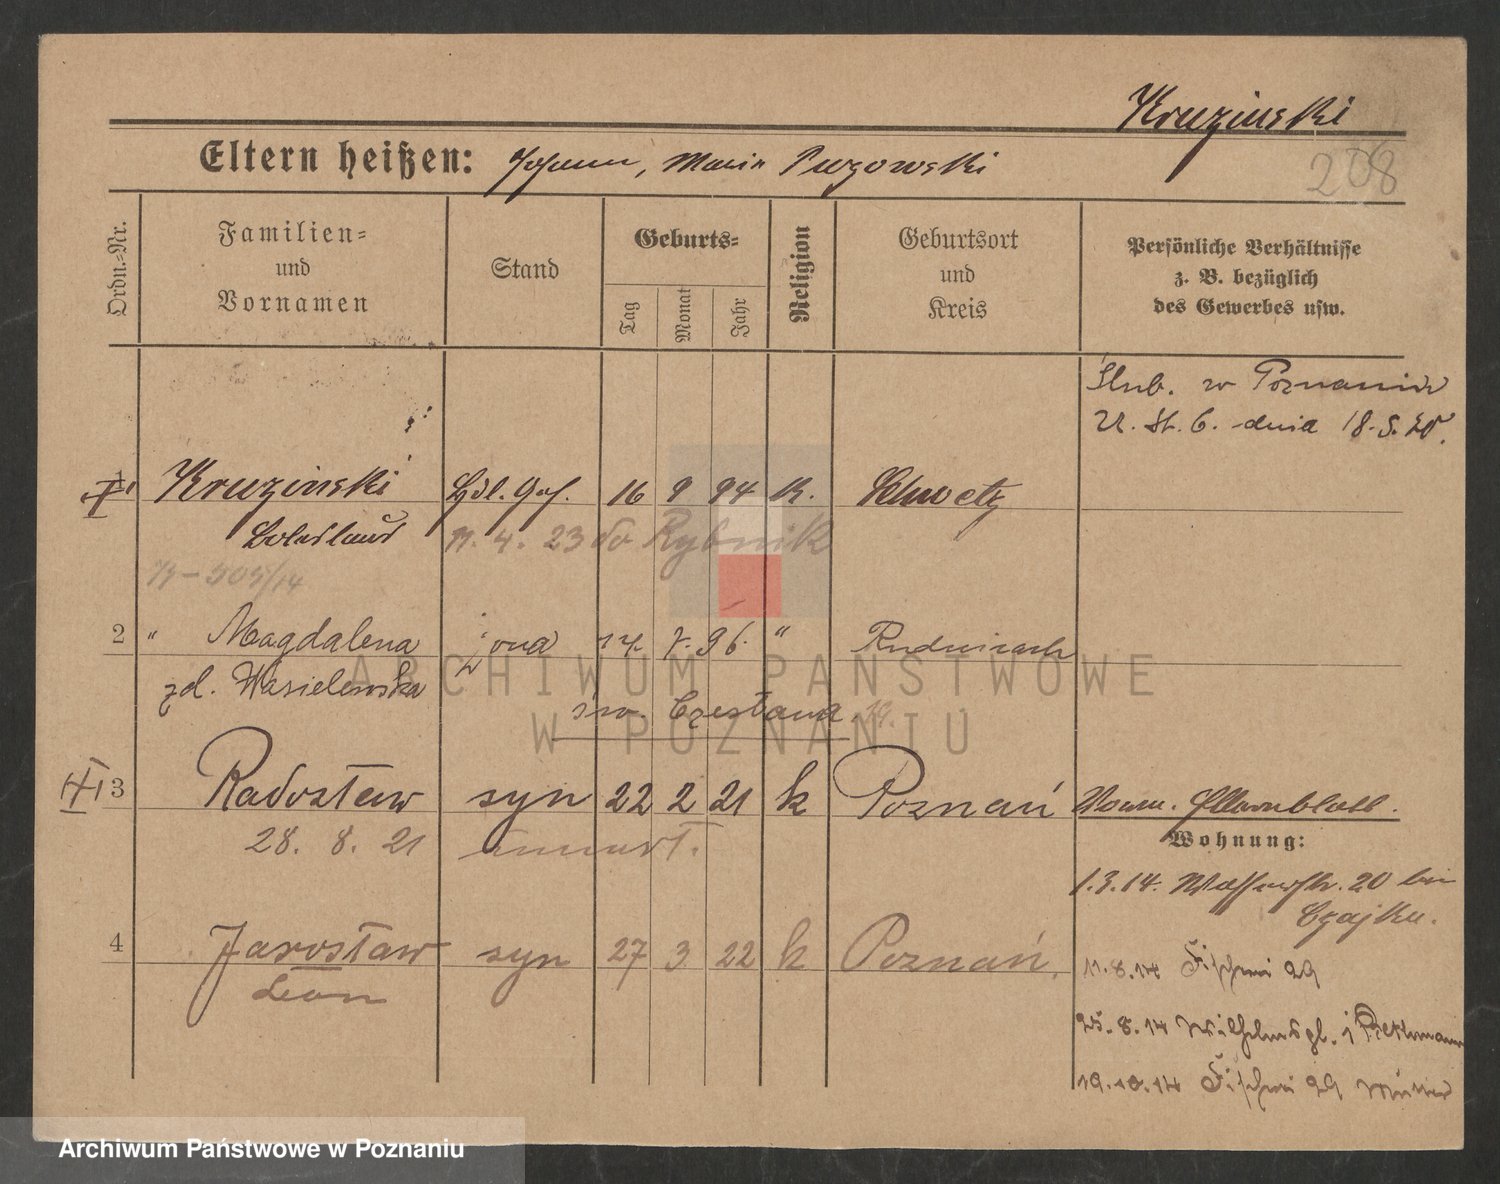 Kruzinski
Eltern heißen: Johann, Maria Puzowski
208
Ordn.-Nr.
Familien-
und
Vornamen
Stand
Geburts-
Tag
Monat
Jahr
Religion
Geburtsort
und
Kreis
Persönliche Verhältnisse
z. B. bezüglich
des Gewerbes usw.
Ślub. w Poznaniu
U. St. C. dnia 18.5.20.
1 Kruzinski Hdl. Geh. 16 9 94 K. Schwetz
Boleslaus 11. 4. 23 do Rybnik
2 " Magdalena żona 17. 7. 96. "
zd. Wasielewska
św. Czesława
3 Radosław syn 22 2 21 k Poznań
28. 8. 21 umarł.
Wohnung:
1.3.14. 20 bei
Czajka.
4 Jarosław syn 27 3 22 k Poznań.
Leon
11.8.14 Fischerei 29
25.8.14 Wilhelmspl.
19.10.14 Fischerei 29
ARCHIWUM PAŃSTWOWE
W POZNANIU
Archiwum Państwowe w Poznaniu